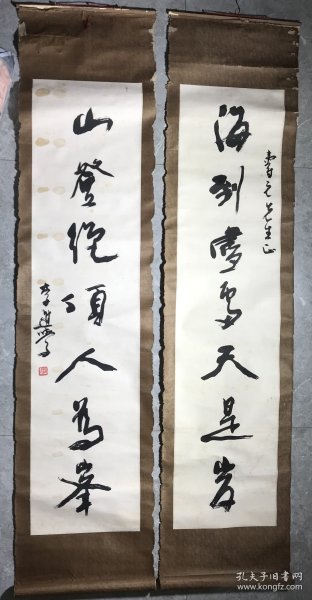 海到無邊天是岸
先生正
山登絕頂人為峯
孔夫子旧书网
www.kongfz.com